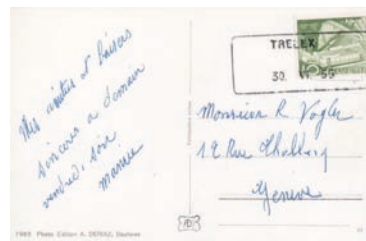 Mes amitiés et baisers
sincères a demain
vendredi soir
TRELEX
30. 55
Monsieur R Vogler
12 Rue
Genève
Photo Edition A. DERIAZ, Baulmes